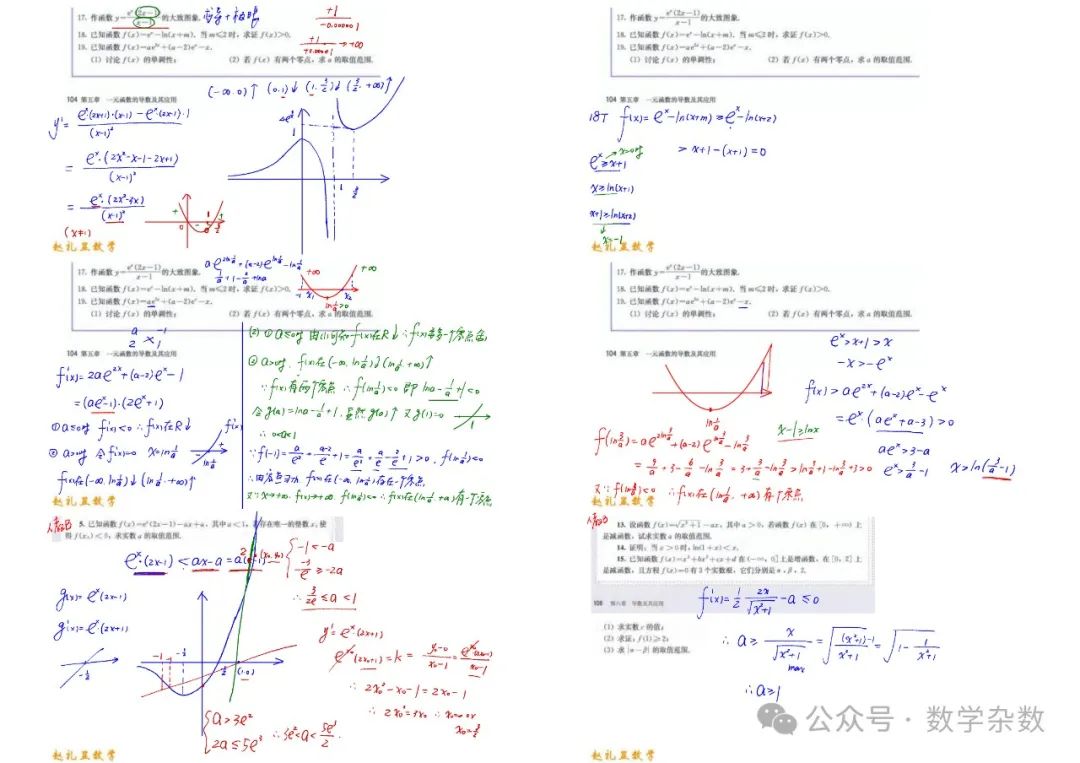 17. 作函数 y=e^x(2x-1)/(x-1) 的大致图象.
18. 已知函数 f(x)=e^x-ln(x+m). 当 m≤2 时, 求证 f(x)>0.
19. 已知函数 f(x)=ae^{2x}+(a-2)e^x-x.
(1) 讨论 f(x) 的单调性; (2) 若 f(x) 有两个零点, 求 a 的取值范围.
+1/-0.00001
+1/+0.00001 → +∞
104 第五章 一元函数的导数及其应用
(-∞,0)↑ (0,1)↓ (1,3/2)↓ (3/2,+∞)↑
y'= e^x·(2x+1)·(x-1) - e^x·(2x-1)·1 / (x-1)²
= e^x·(2x²-x-1-2x+1) / (x-1)²
= e^x·(2x²-3x) / (x-1)²
(x≠1)
赵礼显数学
17. 作函数 y=e^x(2x-1)/(x-1) 的大致图象.
18. 已知函数 f(x)=e^x-ln(x+m). 当 m≤2 时, 求证 f(x)>0.
19. 已知函数 f(x)=ae^{2x}+(a-2)e^x-x.
(1) 讨论 f(x) 的单调性; (2) 若 f(x) 有两个零点, 求 a 的取值范围.
104 第五章 一元函数的导数及其应用
18T f(x)=e^x-ln(x+m)≥e^x-ln(x+2)
> x+1-(x+1)=0
e^x≥x+1 x=0时
x≥ln(x+1)
x+1≥ln(x+2)
x=-1
赵礼显数学
17. 作函数 y=e^x(2x-1)/(x-1) 的大致图象.
18. 已知函数 f(x)=e^x-ln(x+m). 当 m≤2 时, 求证 f(x)>0.
19. 已知函数 f(x)=ae^{2x}+(a-2)e^x-x.
(1) 讨论 f(x) 的单调性; (2) 若 f(x) 有两个零点, 求 a 的取值范围.
104 第五章 一元函数的导数及其应用
a -1
2 1
f'(x)=2ae^{2x}+(a-2)e^x-1
=(ae^x-1)·(2e^x+1)
①a≤0时 f'(x)<0 ∴f(x)在R↓
②a>0时 令f'(x)=0 x=ln1/a
f(x)在(-∞,ln1/a)↓(ln1/a,+∞)↑
(2) ①a≤0时 由(1)可知 f(x)在R↓ ∴f(x)至多一个零点舍
②a>0时, f(x)在(-∞,ln1/a)↓(ln1/a,+∞)↑
∵f(x)有两个零点 ∴f(ln1/a)<0 即 lna-1/a+1<0
令g(a)=lna-1/a+1, 显然g(a)↑ 又g(1)=0
∴0<a<1
∵f(-1)=a/e²+(a-2)/e+1=a/e²+a/e-2/e+1>0, f(ln1/a)<0
赵礼显数学
17. 作函数 y=e^x(2x-1)/(x-1) 的大致图象.
18. 已知函数 f(x)=e^x-ln(x+m). 当 m≤2 时, 求证 f(x)>0.
19. 已知函数 f(x)=ae^{2x}+(a-2)e^x-x.
(1) 讨论 f(x) 的单调性; (2) 若 f(x) 有两个零点, 求 a 的取值范围.
104 第五章 一元函数的导数及其应用
e^x>x+1>x
-x>-e^x
f(x)>ae^{2x}+(a-2)e^x-e^x
=e^x·(ae^x+a-3)>0
ae^x>3-a
e^x>3/a-1 x>ln(3/a-1)
x-1≥lnx
f(ln3/a)=ae^{2ln3/a}+(a-2)e^{ln3/a}-ln3/a
=9/a+3-6/a-ln3/a=3+3/a-ln3/a>ln3/a+1-ln3/a+3>0
又∵f(ln1/a)<0 ∴f(x)在(ln1/a,+∞)有个零点
赵礼显数学
人教B
5. 已知函数 f(x)=e^x(2x-1)-ax+a, 其中 a<1, 若存在唯一的整数 x₀ 使
得 f(x₀)<0, 求实数 a 的取值范围.
e^x·(2x-1)<ax-a=a(x-1)
-1<-a
-3/e≥-2a
∴3/2e≤a<1
g(x)=e^x(2x-1)
g'(x)=e^x·(2x+1)
y'=e^x(2x+1)
∴2x₀²-x₀-1=2x₀-1
∴2x₀²=3x₀ ∴x₀=0或
x₀=3/2
a>3e²
2a≤5e³
∴3e²<a≤5e³/2
赵礼显数学
人教B
13. 设函数 f(x)=√(x²+1)-ax, 其中 a>0, 若函数 f(x) 在 [0, +∞) 上
是减函数, 试求实数 a 的取值范围.
14. 证明: 当 x>0 时, ln(1+x)<x.
15. 已知函数 f(x)=x³+bx²+cx+d 在 (-∞, 0] 上是增函数, 在 [0, 2] 上
是减函数, 且方程 f(x)=0 有 3 个实数根, 它们分别是 α, β, 2.
108 第六章 导数及其应用
(1) 求实数 c 的值;
(2) 求证: f(1)≥2;
(3) 求 |α-β| 的取值范围.
f'(x)=1/2·2x/√(x²+1)-a≤0
∴a≥x/√(x²+1) max=√((x²+1)-1/(x²+1))=√(1-1/(x²+1))
∴a≥1
公众号·数学杂数
赵礼显数学